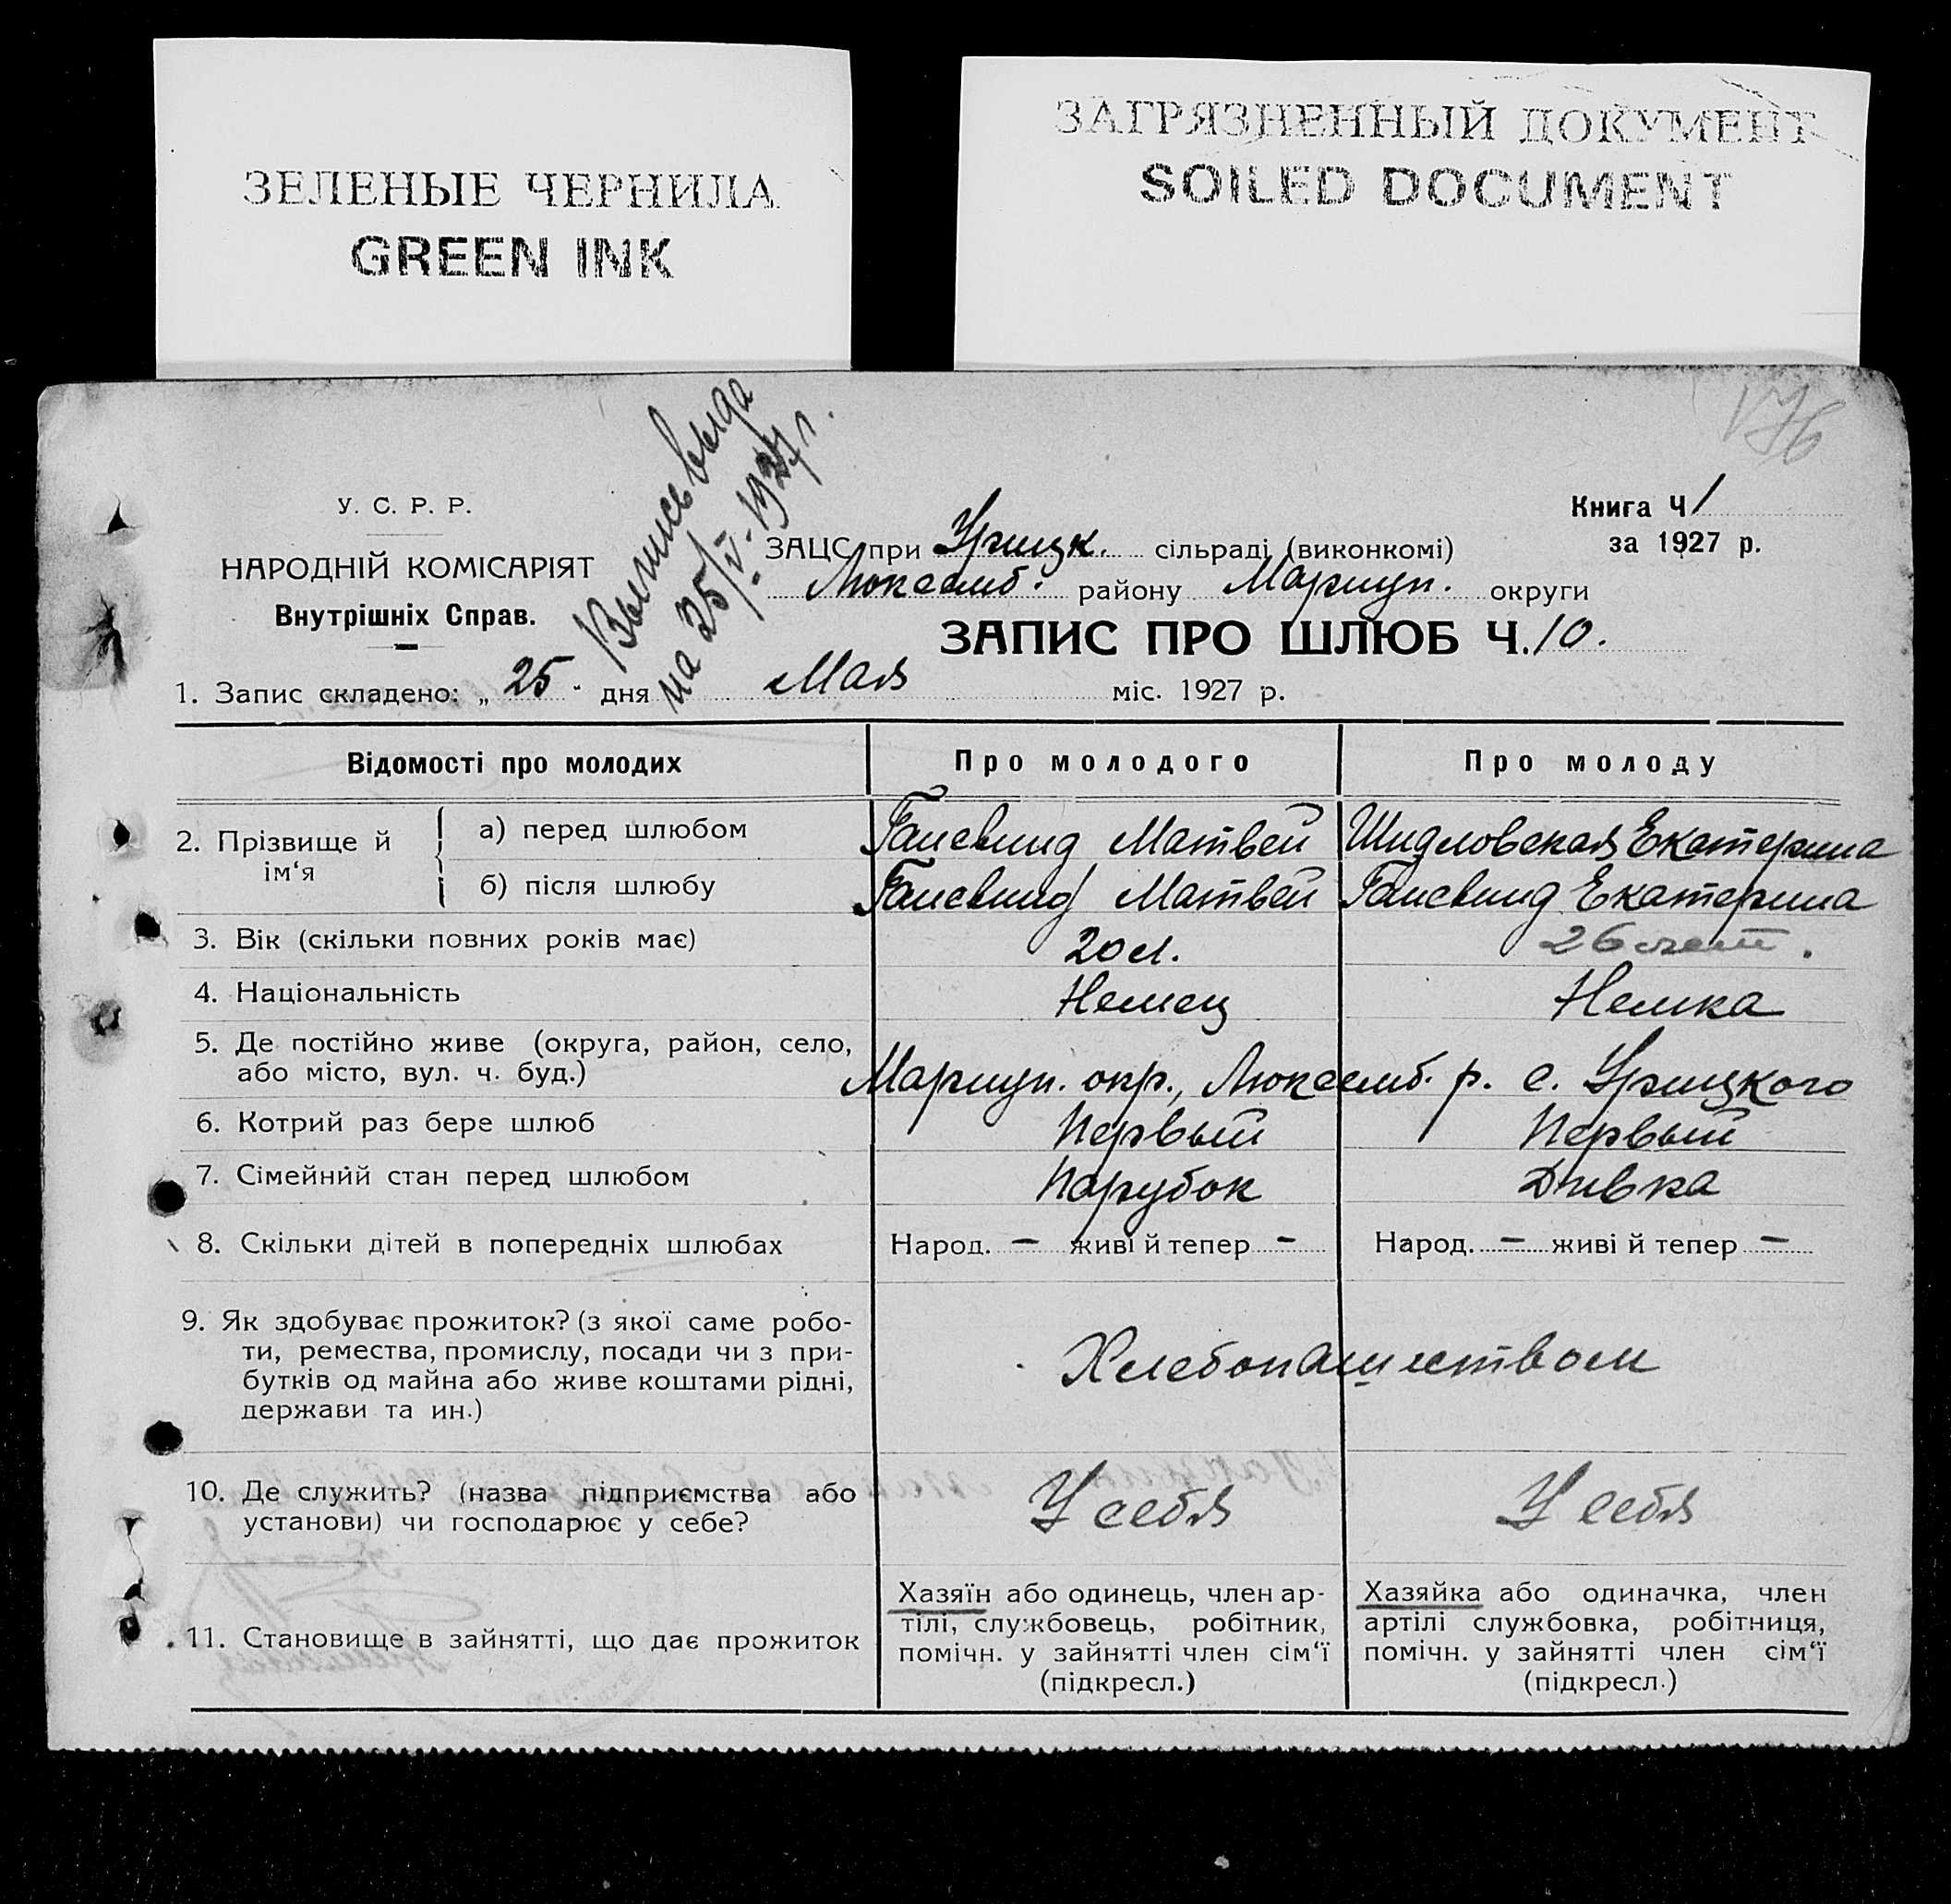 ЗЕЛЕНЫЕ ЧЕРНИЛА
GREEN INK
ЗАГРЯЗНЕННЫЙ ДОКУМЕНТ
SOILED DOCUMENT
У. С. Р. Р.
НАРОДНІЙ КОМІСАРІЯТ
Внутрішніх Справ.
Выпись выда
на 25/V-1927 г.
176
Книга Ч 1
за 1927 р.
ЗАЦС при Урицк. сільраді (виконкомі)
Люксемб. району Мариуп. округи
ЗАПИС ПРО ШЛЮБ Ч. 10.
1. Запис складено: „ 25 " дня Мая міс. 1927 р.
Відомості про молодих Про молодого Про молоду
2. Прізвище й ім‘я
а) перед шлюбом Матвей Шидловская Екатерина
б) після шлюбу Матвей Екатерина
3. Вік (скільки повних років має) 20 л. 26 лет.
4. Національність Немец Немка
5. Де постійно живе (округа, район, село,
або місто, вул. ч. буд.) Мариуп. окр., Люксемб. р. с. Урицкого
6. Котрий раз бере шлюб Первый Первый
7. Сімейний стан перед шлюбом Парубок Дивка
8. Скільки дітей в попередніх шлюбах Народ. — живі й тепер — Народ. — живі й тепер —
9. Як здобуває прожиток? (з якої саме робо-
ти, ремества, промислу, посади чи з при-
бутків од майна або живе коштами рідні,
держави та ин.)
Хлебопашеством
10. Де служить? (назва підприємства або
установи) чи господарює у себе?
У себя У себя
11. Становище в зайнятті, що дає прожиток
Хазяїн або одинець, член ар-
тілі, службовець, робітник,
помічн. у зайнятті член сім‘ї
(підкресл.)
Хазяйка або одиначка, член
артілі службовка, робітниця,
помічн. у зайнятті член сім‘ї
(підкресл.)